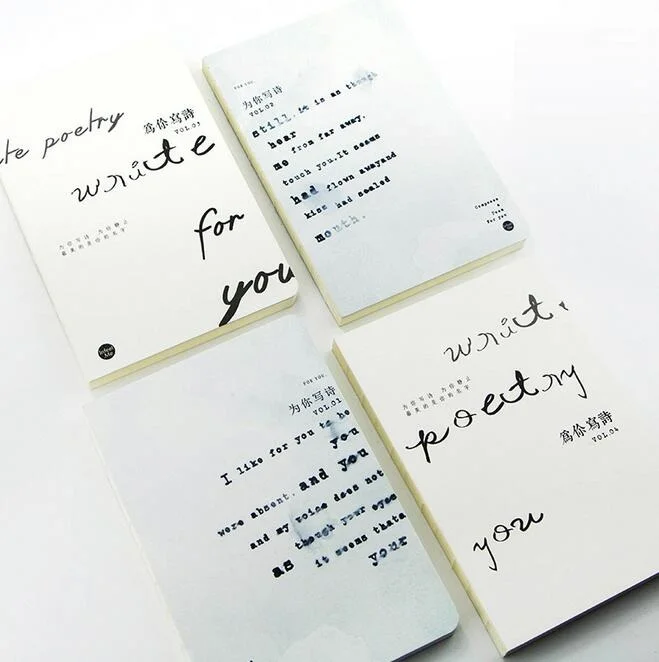 te poetry
為你寫詩
VOL.03
write
for
you
为你写诗 为你静止
最美的是你的名字
Infeel
Me
FOR YOU.
为你写诗
VOL.02
still.it is as though
hear
me from far away.
touch you.It seems
had flown awayand
kiss had sealed
mouth.
Compose
a
Poem
For You
FOR YOU.
为你写诗
VOL.01
I like for you to be
you
were absent. and you
and my voice does not
though your eyes
as it seems thata
your
writ
poetry
为你写诗 为你静止
最美的是你的名字
為你寫詩
VOL.04
you